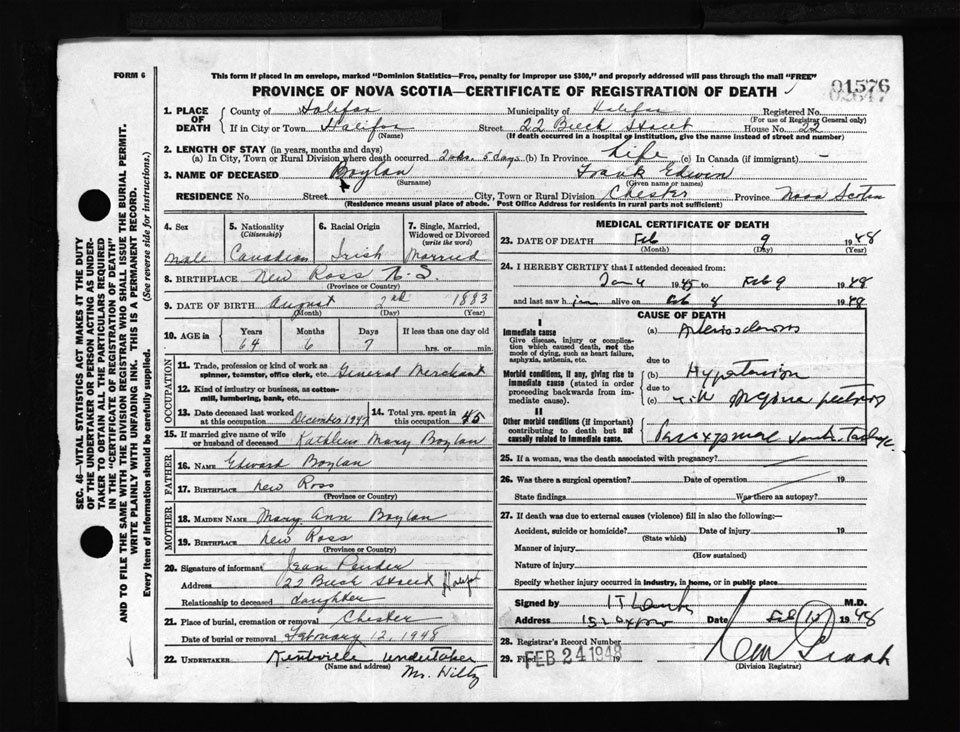 FORM 6
This form if placed in an envelope, marked "Dominion Statistics—Free, penalty for improper use $300," and properly addressed will pass through the mail "FREE"
PROVINCE OF NOVA SCOTIA—CERTIFICATE OF REGISTRATION OF DEATH
01576
02647
1. PLACE OF DEATH
County of Halifax Municipality of Halifax Registered No.
(For use of Registrar General only)
If in City or Town Halifax Street 22 Beech Street House No. 22
(Name) (If death occurred in a hospital or institution, give the name instead of street and number)
2. LENGTH OF STAY (in years, months and days)
(a) In City, Town or Rural Division where death occurred 2 mo. 5 days (b) In Province Life (c) In Canada (if immigrant) —
3. NAME OF DECEASED Boylan Frank Edwin
(Surname) (Given name or names)
RESIDENCE No. Street City, Town or Rural Division Chester Province Nova Scotia
(Residence means usual place of abode. Post Office Address for residents in rural parts not sufficient)
4. Sex
Male
5. Nationality
(Citizenship)
Canadian
6. Racial Origin
Irish
7. Single, Married, Widowed or Divorced
(write the word)
Married
8. BIRTHPLACE New Ross N.S.
(Province or Country)
9. DATE OF BIRTH August 2nd 1883
(Month) (Day) (Year)
10. AGE in
Years Months Days If less than one day old
64 6 7 hrs. or min.
OCCUPATION
11. Trade, profession or kind of work as spinner, teamster, office clerk, etc. General Merchant
12. Kind of industry or business, as cotton-mill, lumbering, bank, etc.
13. Date deceased last worked at this occupation December 1947
14. Total yrs. spent in this occupation 45
15. If married give name of wife or husband of deceased Kathleen Mary Boylan
FATHER
16. NAME Edward Boylan
17. BIRTHPLACE New Ross
(Province or Country)
MOTHER
18. MAIDEN NAME Mary Ann Boylan
19. BIRTHPLACE New Ross
(Province or Country)
20. Signature of informant Jean Pender
Address 22 Beech Street Halifax
Relationship to deceased daughter
21. Place of burial, cremation or removal Chester
Date of burial or removal February 12, 1948
22. UNDERTAKER Kentville undertaker
(Name and address) Mr. Hiltz
MEDICAL CERTIFICATE OF DEATH
23. DATE OF DEATH Feb 9 1948
(Month) (Day) (Year)
24. I HEREBY CERTIFY that I attended deceased from:
Jan 4 1945 to Feb 9 1948
and last saw him alive on Feb 8 1948
CAUSE OF DEATH
I
Immediate cause
Give disease, injury or complication which caused death, not the mode of dying, such as heart failure, asphyxia, asthenia, etc.
(a) Arteriosclerosis
due to
Morbid conditions, if any, giving rise to immediate cause (stated in order proceeding backwards from immediate cause).
(b) Hypertension
due to
(c) with Angina pectoris
II
Other morbid conditions (if important) contributing to death but not causally related to immediate cause.
Paroxysmal
25. If a woman, was the death associated with pregnancy?
26. Was there a surgical operation? Date of operation 19
State findings Was there an autopsy?
27. If death was due to external causes (violence) fill in also the following:—
Accident, suicide or homicide? Date of injury 19
(State which)
Manner of injury
(How sustained)
Nature of injury
Specify whether injury occurred in industry, in home, or in public place
Signed by M.D.
Address Date Feb 1948
28. Registrar's Record Number
29. Filed FEB 24 1948 19
(Division Registrar)
SEC. 46—VITAL STATISTICS ACT MAKES IT THE DUTY
OF THE UNDERTAKER OR PERSON ACTING AS UNDER-
TAKER TO OBTAIN ALL THE PARTICULARS REQUIRED
IN THE "CERTIFICATE OF REGISTRATION OF DEATH"
AND TO FILE THE SAME WITH THE DIVISION REGISTRAR WHO SHALL ISSUE THE BURIAL PERMIT.
WRITE PLAINLY WITH UNFADING INK. THIS IS A PERMANENT RECORD.
Every item of Information should be carefully supplied. (See reverse side for instructions.)